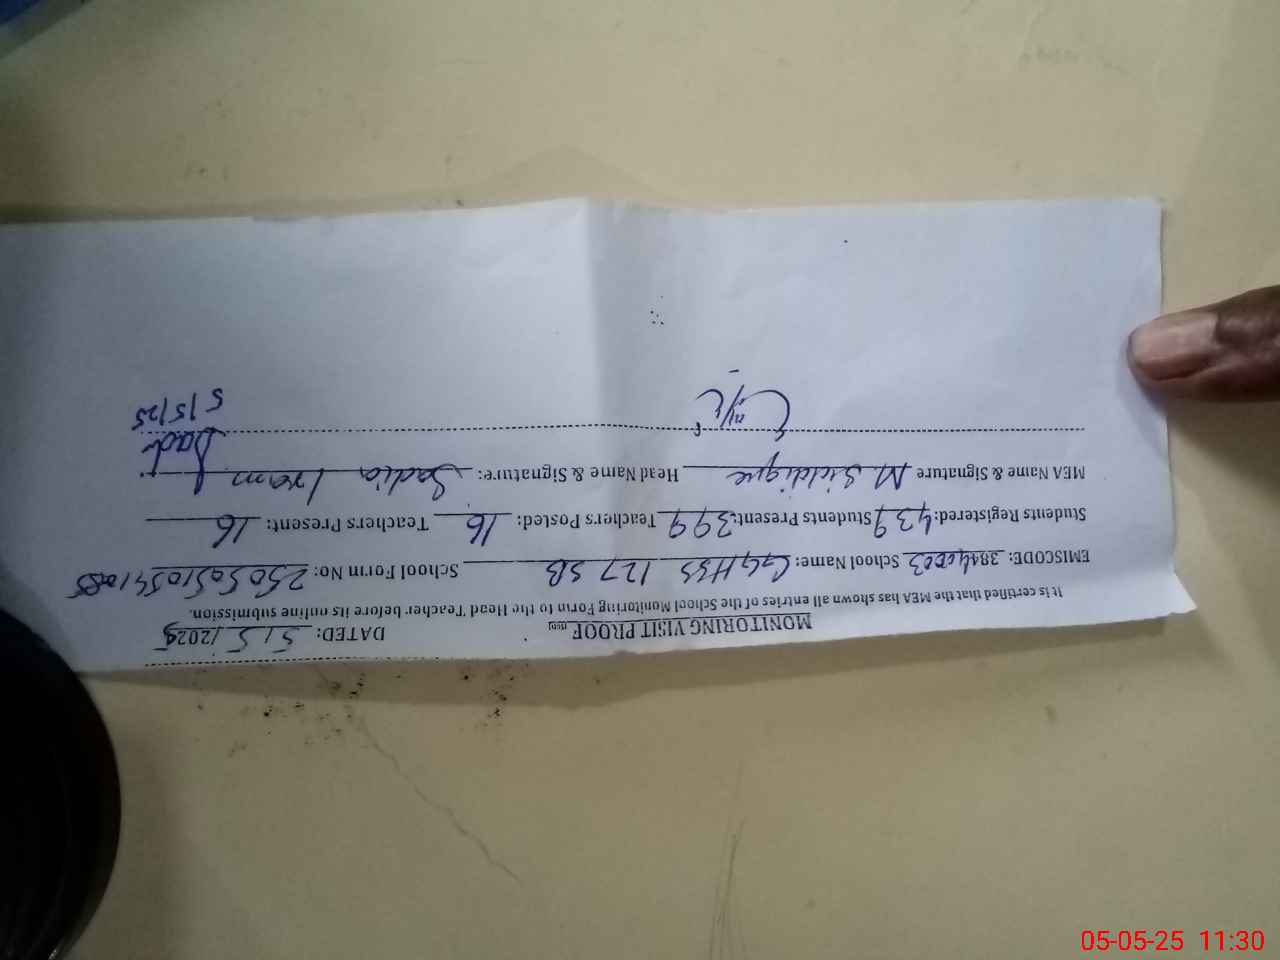 MONITORING VISIT PROOF DATED: 5/5/2025
It is certified that the MEA has shown all entries of the School Monitoring Form to the Head Teacher before its online submission.
EMISCODE: School Name: GGHSS 127 SB School Form No:
Students Registered: 439 Students Present: 399 Teachers Posted: 16 Teachers Present: 16
MEA Name & Signature M. Siddique Head Name & Signature: Sadia Iram
5/5/25
05-05-25 11:30